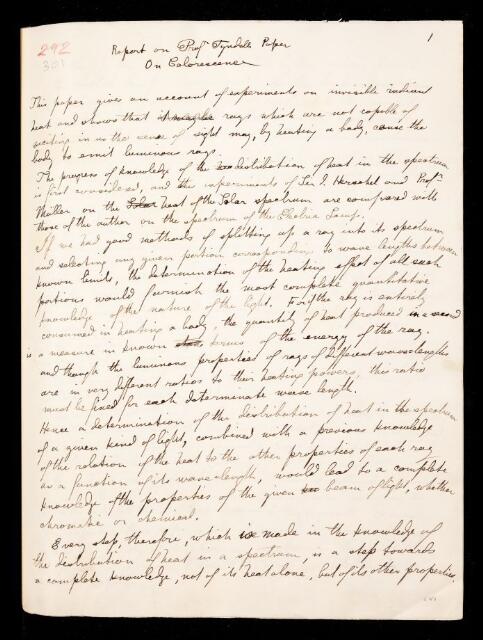 292
301
1
Report on Prof.r Tyndall's Paper
On Calorescence
This paper gives an account of experiments on invisible radiant
heat and shows that rays which are not capable of
exciting in us the sense of sight may, by heating a body, cause the
body to emit luminous rays.
The progress of knowledge of the distribution of heat in the spectrum
is first considered, and the experiments of Sir J. Herschel and Prof.r
Müller on the Solar heat of the Solar spectrum are compared with
those of the author on the spectrum of the Electric Lamp.
If we had good methods of splitting up a ray into its spectrum
and selecting any given portion corresponding to wave lengths between
known limits, the determination of the heating effect of all such
portions would furnish the most complete quantitative
knowledge of the nature of the light. For if the ray is entirely
consumed in heating a body, the quantity of heat produced in a second
is a measure in known terms of the energy of the ray.
and though the luminous properties of rays of different wavelengths
are in very different ratios to their heating powers, this ratio
must be fixed for each determinate wave length.
Hence a determination of the distribution of heat in the spectrum
of a given kind of light, combined with a previous knowledge
of the relation of the heat to the other properties of each ray
as a function of its wavelength, would lead to a complete
knowledge of the properties of the given beam of light, whether
chromatic or chemical.
Every step, therefore, which is made in the knowledge of
the distribution of heat in a spectrum, is a step towards
a complete knowledge, not of its heat alone, but of its other properties.